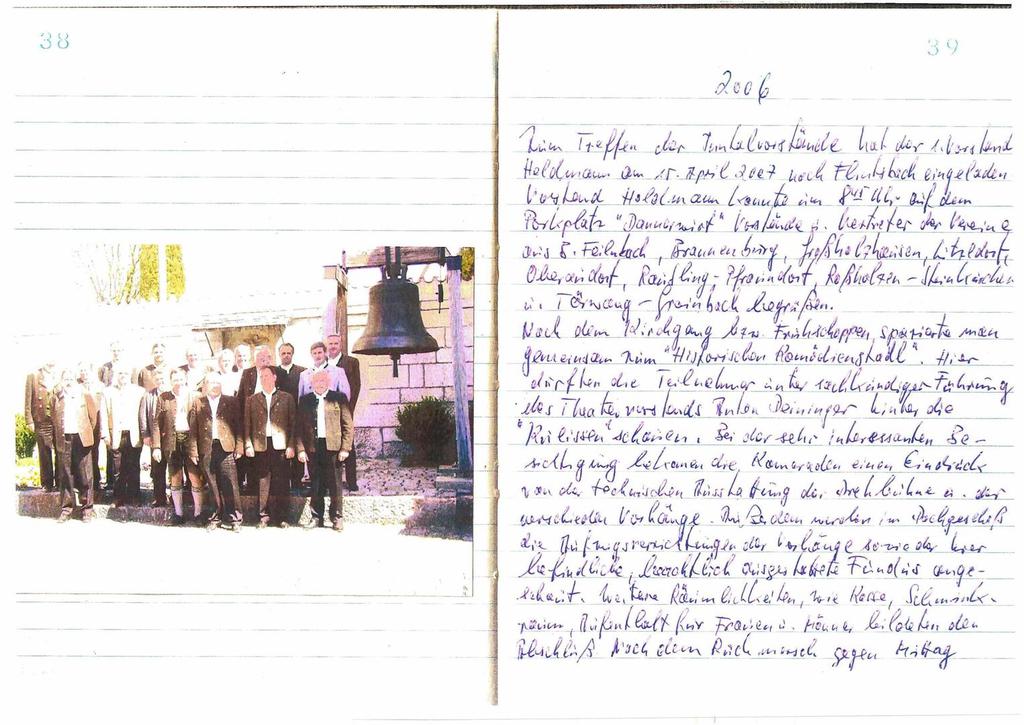 38
39
2006
Zum Treffen der Inntalvorstände hat der 1. Vorstand
Holdmann am 15. April 2007 nach Flintsbach eingeladen
Vorstand Holdmann konnte um 8⁴⁵ Uhr auf dem
Parkplatz "Dannerwirt" Vorstände u. Vertreter der Vereine
aus B. Feilnbach, Brannenburg, Großholzhausen, Litzldorf,
Oberaudorf, Raubling-Pfraundorf, Roßholzen-Steinkirchen
u. Törwang-Grainbach begrüßen.
Nach dem Kirchgang bzw. Frühschoppen, spazierte man
gemeinsam zum "Historischen Komödienstadl". Hier
dürften die Teilnehmer unter sachkundiger Führung
des Theatervorstands Anton Deininger hinter die
"Kulissen" schauen. Bei der sehr interessanten Be-
sichtigung bekamen die Kameraden einen Eindruck
von der technischen Ausstattung der Drehbühne u. der
verschieden Vorhänge. Außerdem wurden im Dachgeschoß
die der Vorhänge sowie der hier
befindliche, beachtlich ausgestattete Fundus ange-
schaut. Weitere Räumlichkeiten, wie Kasse, Schmink-
raum, Aufenthalt für Frauen u. Männer bildeten den
Abschluß. Nach dem Rückmarsch gegen Mittag